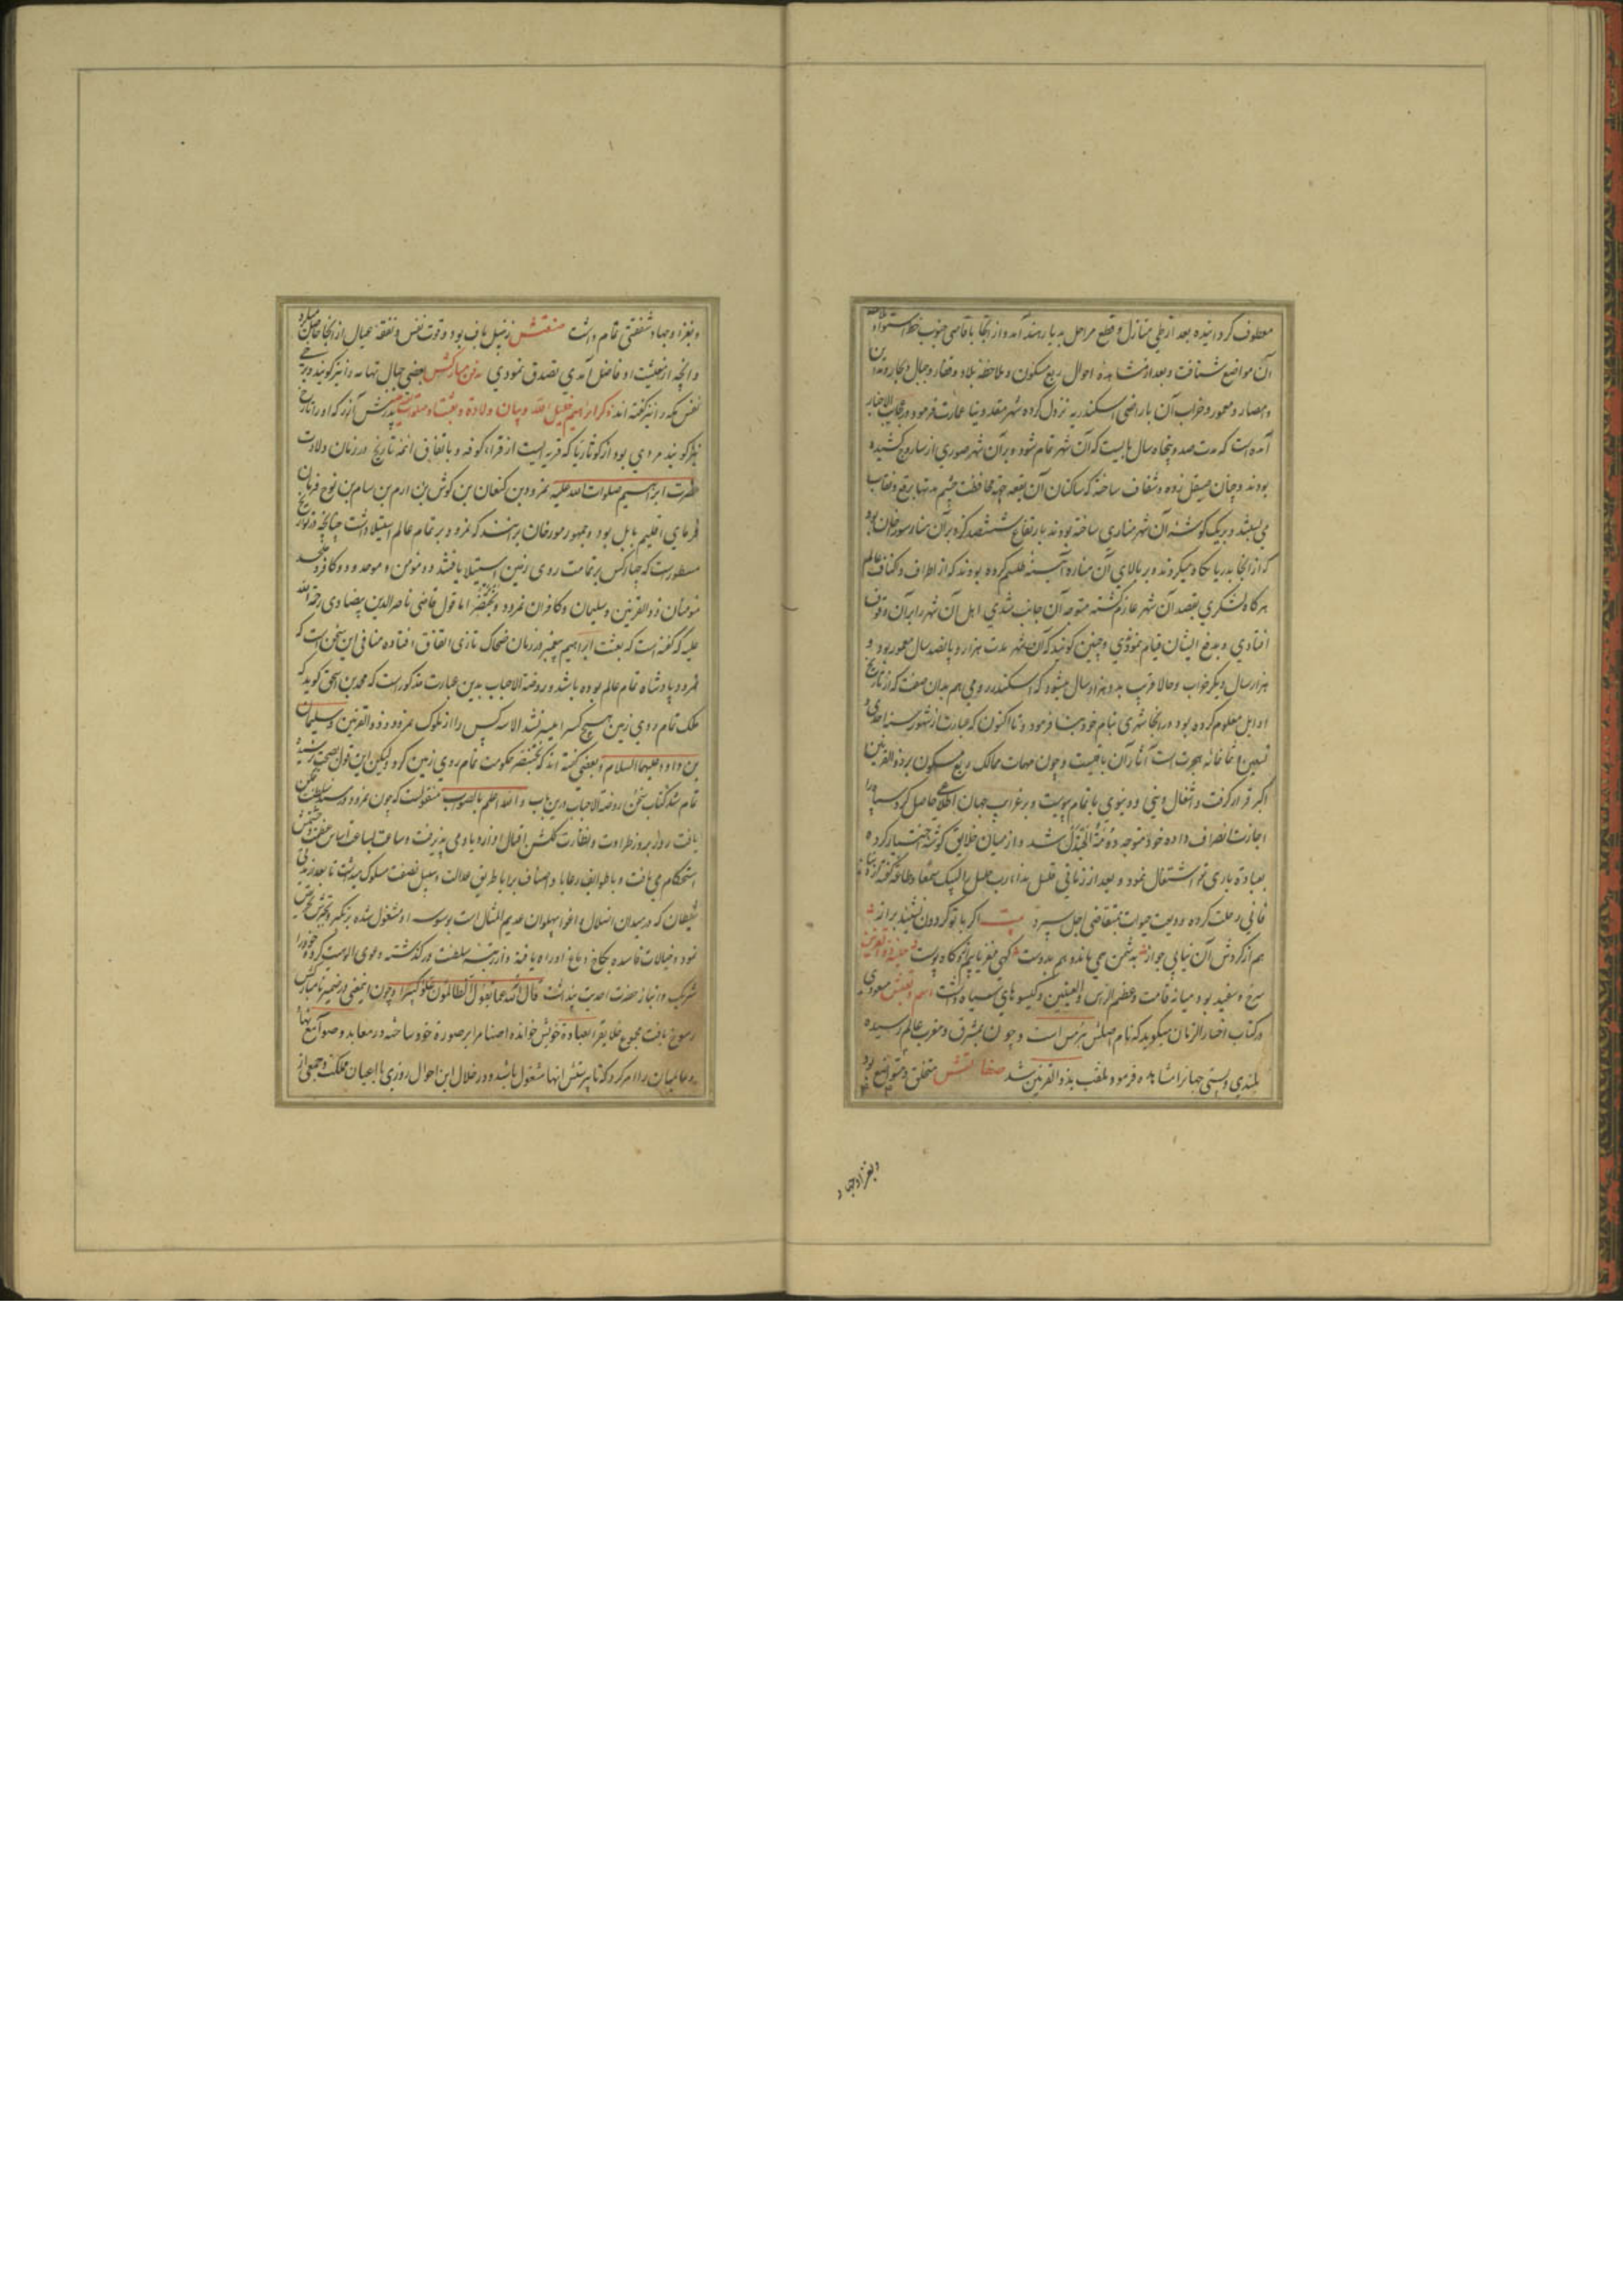 معطوف کردانیده بعد از طی منازل و قطع مراحل بدیار هند آمد و از آنجا باقاصی جنوب خط استوا و
آن مواضع شتافت و بعد از مشاهده احوال ربع مسکون و ملاحظه بلاد و قفار و جبال و بحار و مداین
و امصار و معمور و خراب آن باراضی اسکندریه نزول کرده شهر مقدونیا عمارت فرمود و در عجایب الاخبار
آمده است که مدت صد و پنجاه سال بایست که آن شهر تمام شود و بر آن شهر صوری از ساروج کشیده
بودند و چنان صیقل زده و شفاف ساخته که ساکنان آن بقعه جهة محافظت چشم مدتها برقع و نقاب
می بستند و بر یک گوشه آن شهر مناری ساخته بودند بارتفاع ششصد گز و بر آن منار سوراخها بود
که از آنجا بدریا نگاه میکردند و بر بالای آن مناره آیینه طلسم کرده بودند که از اطراف و اکناف عالم
هرکاه لشکری بقصد آن شهر عازم گشته متوجه آن جانب شدی اهل آن شهر را بر آن وقوف
افتادی و بدفع ایشان قیام نمودندی و چنین گویند که آن شهر مدت هزار و پانصد سال معمور بود و
هزار سال دیگر خراب و حالا قریب بدو هزار سال میشود که اسکندر رومی هم بدان صفت که از تاریخ
اوایل معلوم کرده بود در آنجا شهری بنام خود بنا فرمود و تا اکنون که عبارت از شهور سنه احدی و
تسعین و ثمانمائه هجریست آثار آن باقیست و چون مهمات ممالک ربع مسکون بر ذوالقرنین
اکبر قرار گرفت و اشغال دینی و دنیوی باتمام پیوست و بر غرایب جهان اطلاع حاصل کرد سپاه را
اجازت انصراف داده خود متوجه دومة الجندل شد و از میان خلایق گوشه اختیار کرده
بعبادة باری عز اشتغال نمود و بعد از زمانی قلیل ندای رب جلیل را لبیک سمعا و طاعة گفته از دنیا
فانی رحلت کرده ودیعت حیوات بمتقاضی اجل سپرد بیت اگر با تو گردون نشیند براز
هم از گردش آن نیابی جواز به دشمن همی ماند و هم بدوست گهی مغز یابیم ازو گاه پوست حلیه ذو القرنین
سرخ و سفید بود میانه قامت و عظیم الراس و العینین و گیسوهای سیاه داشت اسم و لقبش مسعودی
در کتاب اخبار الزمان میگوید که نام اصلش هرمس است و چون بمشرق و مغرب عالم رسیده
بلندی و پستی جهانرا مشاهده فرمود ملقب بذوالقرنین شد صفاتش متخلق و متواضع بود
و بغزا و جهاد
و بغزا و جهاد شفقتی تمام داشت صنعتش زنبیل باف بود و قوت نفس و نفقه عیال از آنجا حاصل
و آنچه از معیشت او فاضل آمدی تصدق نمودی مدفن مبارکش بعضی جبال تهامه را نیز گویند و برخی
نفس مکه را نیز گفته اند ذکر ابراهیم خلیل الله و بیان ولادة و بعثت او پدرش آزر که او را تارخ
نیز گویند مردی بود از کوثاریا که قریه ایست از قراء کوفه و باتفاق ائمه تاریخ در زمان ولادت
حضرت ابراهیم صلوات الله علیه نمرود بن کنعان بن کوش بن ارم بن سام بن نوح فرمان
فرمای اقلیم بابل بود و جمهور مورخان برانند که نمرود بر تمام عالم استیلا داشت چنانچه در تواریخ
مسطورست که چهار کس بر تمامت روی زمین استیلا یافتند دو مومن و موحد و دو کافر و ملحد
مومنان ذوالقرنین و سلیمان و کافران نمرود و بختنصر اما قول قاضی ناصر الدین بیضاوی رحمة الله
علیه که گفته است که بعثت ابراهیم پیغمبر در زمان ضحاک تازی اتفاق افتاده منافی این سخن است که
نمرود پادشاه تمام عالم بوده باشد و در روضة الاحباب بدین عبارت مذکورست که محمد بن اسحق گوید که
ملک تمام روی زمین هیچ کس را میسر نشد الا سه کس را از ملوک نمرود و ذوالقرنین و سلیمان
بن داود علیهما السلام و بعضی گفته اند که بختنصر حکومت تمام روی زمین کرد و لیکن این قول بصحت نرسیده
تمام شد کتاب سخن روضة الاحباب درین باب و الله اعلم بالصواب منقولست که چون نمرود در مسند سلطنت تمکن
یافت روز بروز طراوت و نضارت گلشن اقبال او ازدیاد می پذیرفت و ساعت بساعت اساس عظمت و حشمتش
استحکام می یافت و با طوایف رعایا و اصناف برایا طریق عدالت و سبیل نصفت مسلوک میداشت تا بعد از مدتی
شیطان که در میدان اضلال و اغوا پهلوان عدیم المثال است بوسوسه او مشغول شده بر تکبر و تجبرش تحریض
نمود و خیالات فاسده بکاخ دماغ او راه یافته و از مرتبه سلطنت درگذشته دعوی الوهیت کرد و خود را
شریک و انباز حضرت احدیت پنداشت تعالی الله عما یقول الظالمون علوا کبیرا و چون این معنی در ضمیر نامبارکش
رسوخ یافت مجموع خلایق را بعبادة خویش خوانده اصنام را بر صورة خود ساخته در معابد و صوامع نهاد
و عالمیان را امر کرد که تا پرستش آنها مشغول باشند و در خلال این احوال روزی با اعیان مملکت و جمعی از